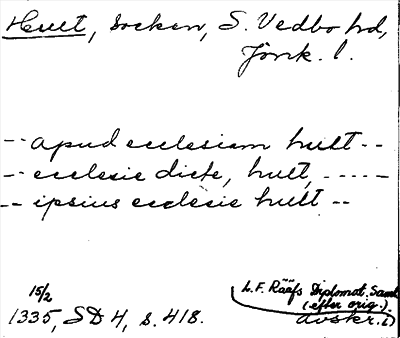 Hult, socken, S. Vedbo hd,
Jönk. l.
-- apud ecclesiam hult --
-- ecclesie dicte, hult, -----
-- ipsius ecclesie hult --
15/2
1335, SD 4, s. 418.
L. F. Rääfs Diplomat. Saml
(efter orig.).
avskr.